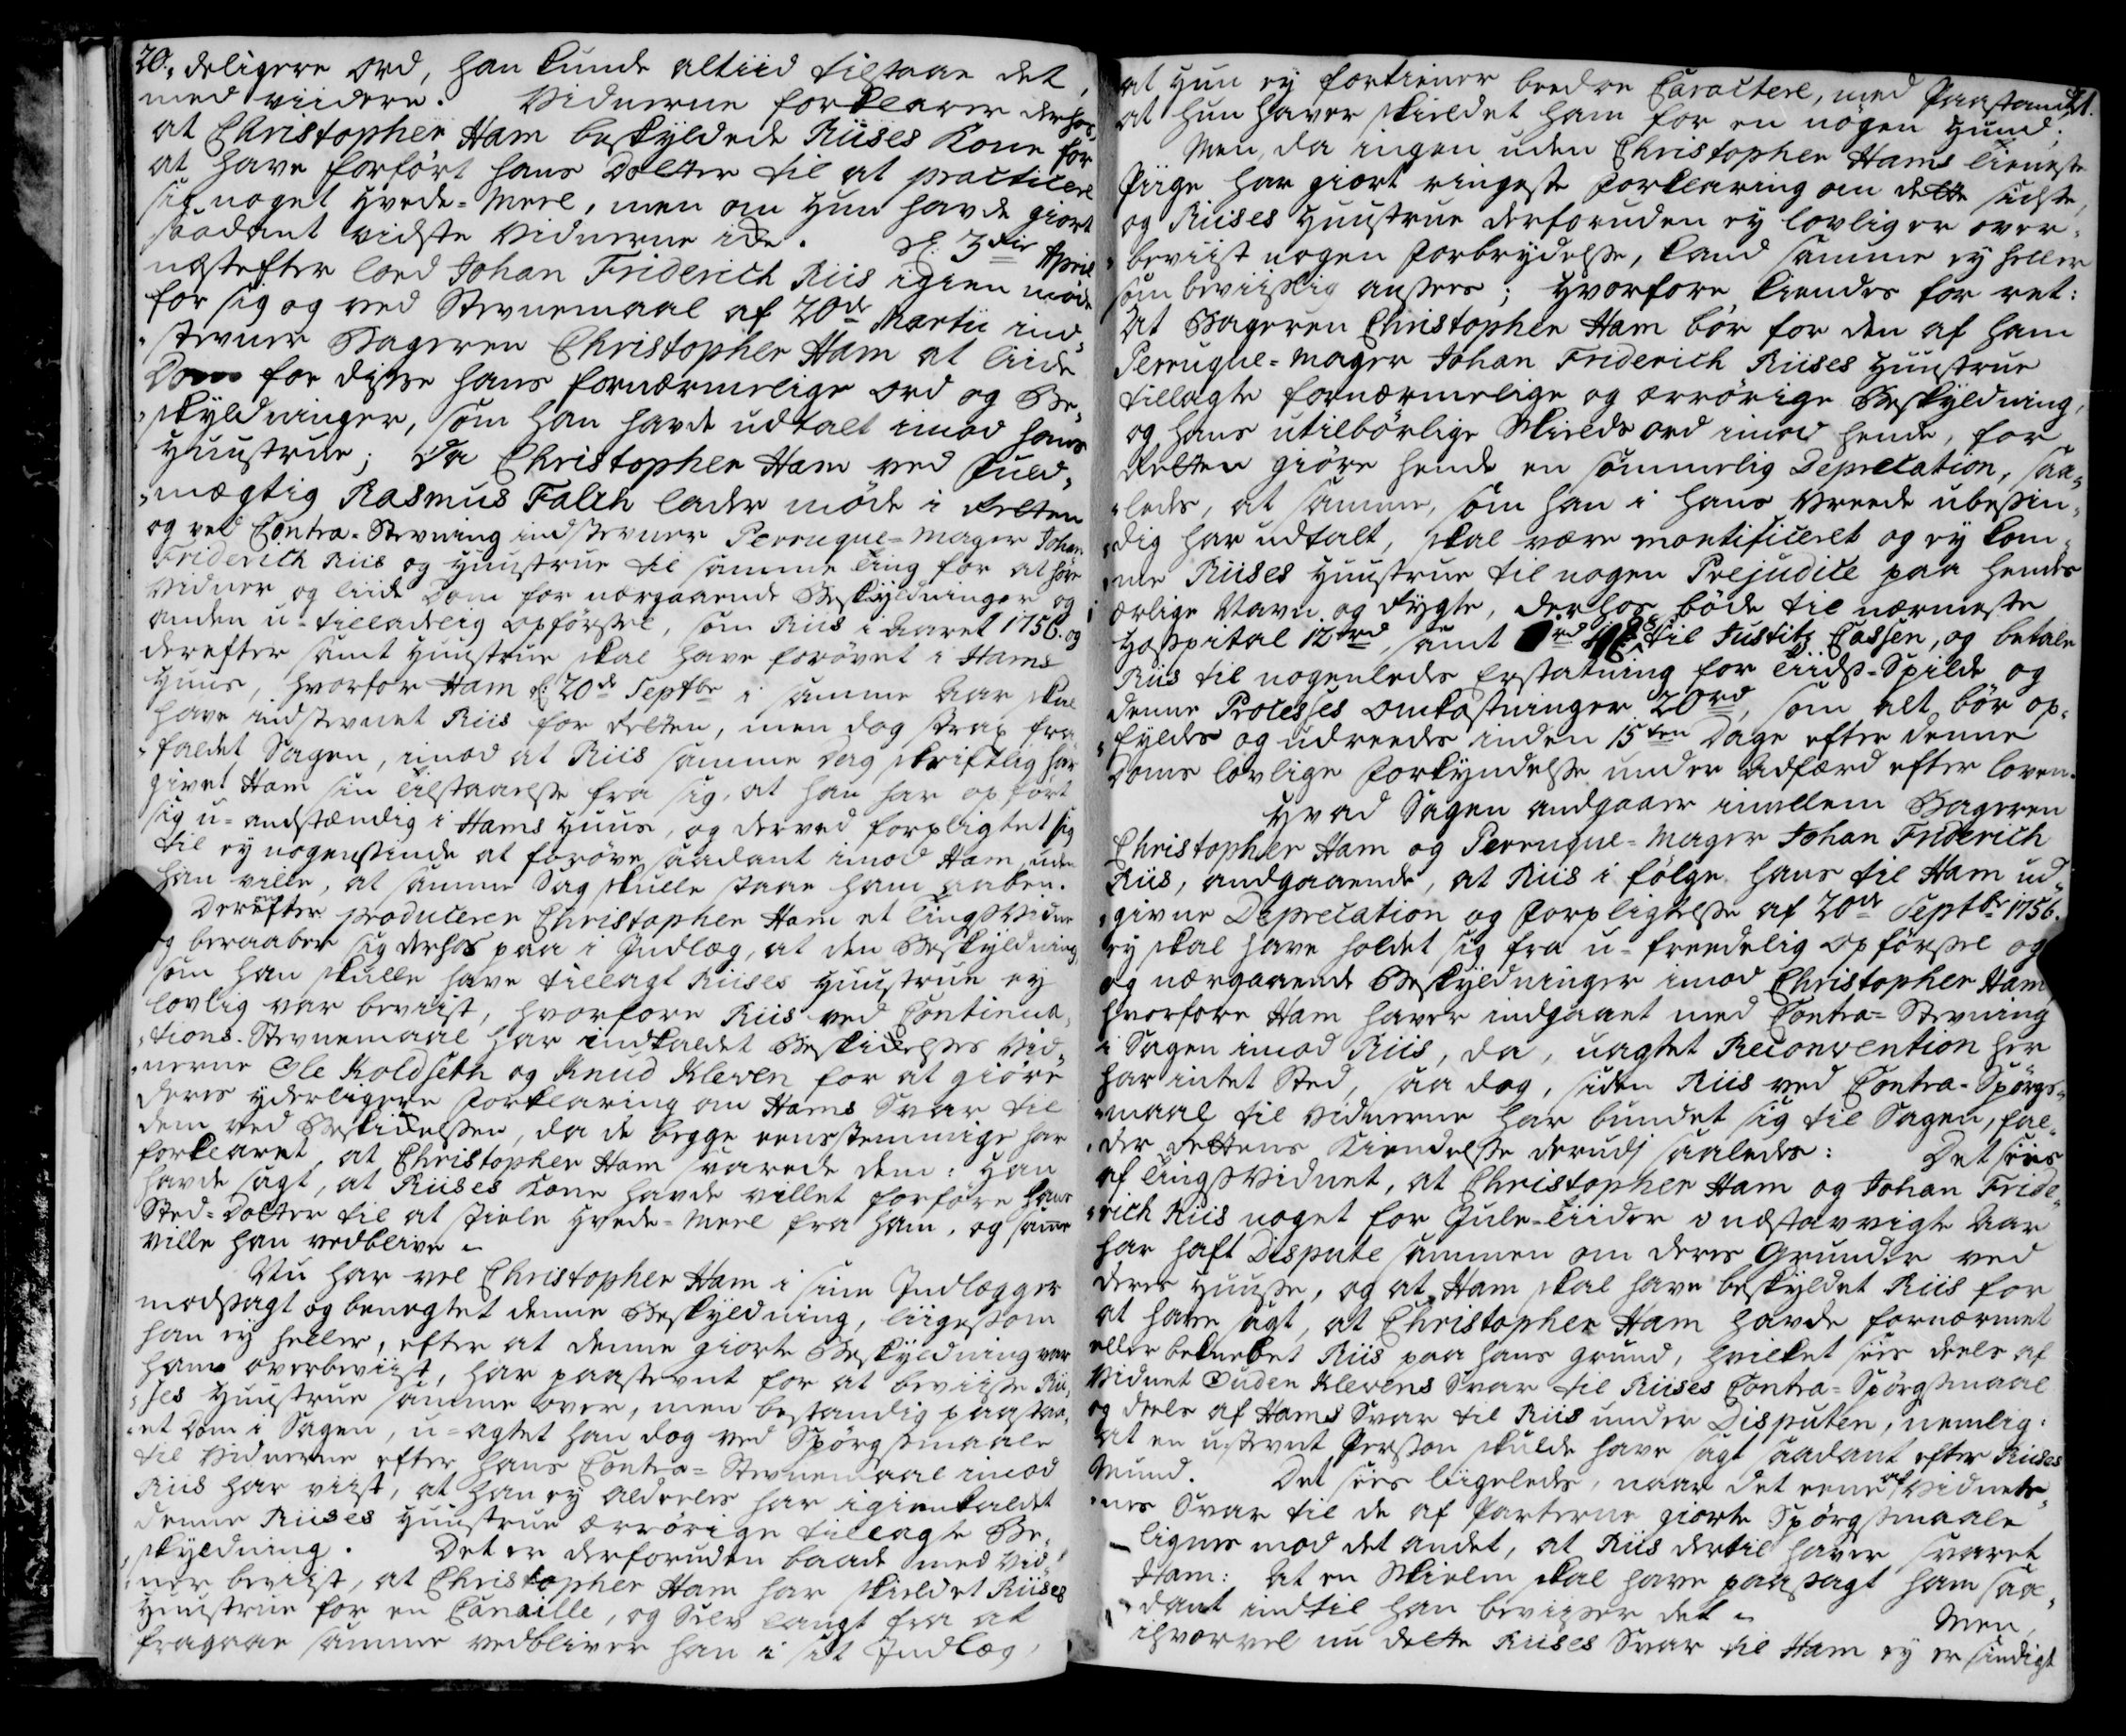 20.
deligere Ord, han kunde altiid tilstaae det,
med viidere. Vidnerne forklarer derhos,
at Christopher Ham beskyldede Riises Kone for
at have forført hans Dotter til at practicere
sig noget Hvede-Meel, men om hun havde giort
saadant vidste Vidnerne ide. d: 3die April
næstefter loed Johan Friderich Riis igien møde
for sig og ved Stevnemaal af 20de Martii ind-
stevner Bageren Christopher Ham at liide
Dom for disse hans fornærmelige Ord og Be-
skyldninger, som han havde udtalt imod hans
Huustrue; Da Christopher Ham ved Fuld-
mægtig Rasmus Falch lader møde i Retten
og ved Contra-Stevning indstevner Perruque-Mager Johan
Friderich Riis og Huustrue til samme Ting for at høre
Vidner og liide Dom for nærgaaende Beskyldninger og
anden u-tilladelig Opførsel, som Riis i Aaret 1756. og
derefter samt Huustrue skal have forøvet i Hams
Huus, hvorfor Ham d: 20de Septbr i samme Aar skal
have indstevnet Riis for Retten, men dog strax fra-
faldet Sagen, imod at Riis samme Dag skriftlig har
givet Ham sin Tilstaaelse fra sig, at han har opført
sig u-anstændig i Hams Huus, og derved forpligtet sig
til ey nogensinde at forøve saadant imod Ham, uden
han ville, at samme Sag skulle staae ham aaben.
Derefter producerer Christopher Ham et TingsVidne
og beraaber sig derhos paa i Indlæg, at den Beskyldning,
som han skulle have tillagt Riises Huustrue ey
lovlig var beviist, hvorfore Riis ved Continua-
tions-Stevnemaal har indkaldet Beskikelses Vid-
nerne Ole Koldseth og Knud Kleven for at giøre
deres yderligere Forklaring om Hams Svar til
dem ved Beskikelsen, da de begge eensstemmige har
forklaret, at Christopher Ham svarede dem: Han
havde sagt, at Riises Kone havde villet forføre hans
Sted-Dotter til at stiele Hvede-Meel fra ham, og samme
ville han vedblive.
Nu har vel Christopher Ham i sine Indlægger
modsagt og benegtet denne Beskyldning, liigesom
han ey heller, efter at denne giorte Beskyldning var
ham overbeviist, har paastevnt for at beviise Rii-
ses Huustrue samme over, men bestandig paastaa-
et Dom i Sagen, u-agtet han dog ved Spørgsmaale
til Vidnerne efter hans Contra-Stevnemaal imod
Riis har viist, at han ey aldeeles har igienkaldet
denne Riises Huustrue ærrørige tillagte Be-
skyldning. Det er derforuden baade med Vid-
ner beviist, at Christopher Ham har skieldet Riises
Huustrue for en Canaille, og Selv langt fra at
fragaae samme vedbliver han i sit Indlæg,
21.
at hun ey fortiener bedre Caractere, med Paastand
at hun haver skieldet ham for en nogen Hund.
Men, da ingen uden Christopher Hams Tieneste
Piige har giort ringeste Forklaring om dette sidste,
og Riises Huustrue derforuden ey lovlig er over-
beviist nogen Forbrydelse, kand samme ey heller
som beviislig ansees; Hvorfore kiendes for ret:
At Bageren Christopher Ham bør for den af ham
Perruque-Mager Johan Friderich Riises Huustrue
tillagte fornærmelige og ærrørige Beskyldning,
og hans utilbørlige Skields ord imod hende, for
Retten giøre hende en sømmelig Deprecation, saa-
ledes, at samme, som han i hans Vreede ubesin-
dig har udtalt, skal være mortificeret og ey kom-
me Riises Huustrue til nogen Prejudice paa hendes
ærlige Navn og Rygte, derhos bøde til nærmeste
Hospital 12 rd, samt til Justitz Cassen, og betale
Riis til nogenledes Erstatning for Tiids-Spilde og
denne Processes Omkostninger 20 rd, som alt bør op-
fyldes og udreedes inden 15ten Dage efter denne
Doms lovlige Forkyndelse under Adfærd efter Loven.
Hvad Sagen andgaaer imellem Bageren
Christopher Ham og Perruque-Mager Johan Friderich
Riis, andgaaende, at Riis i følge hans til Ham ud-
givne Deprecation og Forpligtelse af 20de Septbr 1756.
ey skal have holdet sig fra u-freedelig Opførsel og
og nærgaaende Beskyldninger imod Christopher Ham,
hvorfore Ham haver indgaaet med Contra-Stevning
i Sagen imod Riis, da, uagtet Reconvention her
har intet Sted, saa dog, siden Riis ved Contra-Spørgs-
maal til Vidnerne har bundet sig til Sagen, fal-
der Rettens Kiendelse derudj saaledes: Det sees
af TingsVidnet, at Christopher Ham og Johan Fride-
rich Riis noget for Jule-Tiider i næstavvigte Aar
har haft Dispute sammen om deres Grunder ved
deres Huuse, og at Ham skal have beskyldet Riis for
at have sagt, at Christopher Ham havde fornærmet
eller beknebet Riis paa hans Grund, hvilket sees deels af
Vidnet Ouden Klevens Svar til Riises Contra-Spørgsmaal
og deels af Hams Svar til Riis under Disputen, nemlig:
at en ustevnt Person skulde have sagt saadant efter Riises
Mund. Det sees liigeledes, naar det eene af Vidner-
nes Svar til de af Parterne giorte Spørgsmaale
lignes mod det andet, at Riis dertil haver svaret
Ham: At en Skielm skal have paasagt ham saa-
dant indtil han beviiser det. Men,
ihvorvel nu dette Riises Svar til Ham ey er sindigt